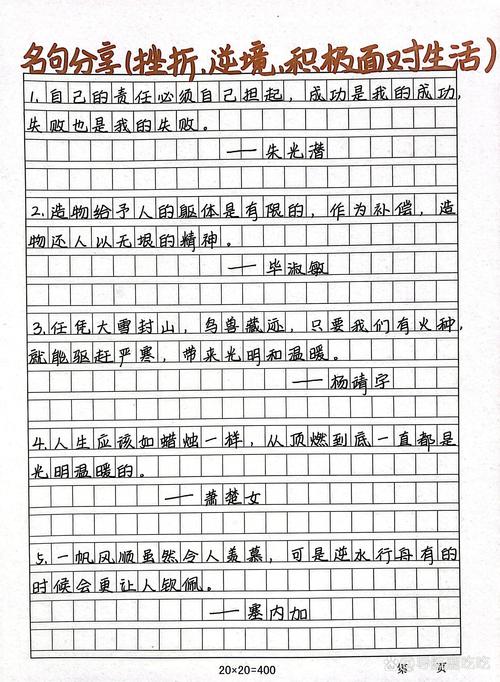 名句分享(挫折、逆境、积极面对生活)
1.自己的责任必须自己担起，成功是我的成功，
失败也是我的失败。
——朱光潜
2.造物给予人的躯体是有限的，作为补偿，造
物还人以无垠的精神。
——毕淑敏
3.任凭大雪封山，鸟兽藏迹，只要我们有火种，
就能驱赶严寒，带来光明和温暖。
——杨靖宇
4.人生应该如蜡烛一样，从顶燃到底一直都是
光明温暖的。
——萧楚女
5.一帆风顺虽然令人羡慕，可是逆水行舟有的
时候会更让人钦佩。
——塞内加
20×20=400
第 页